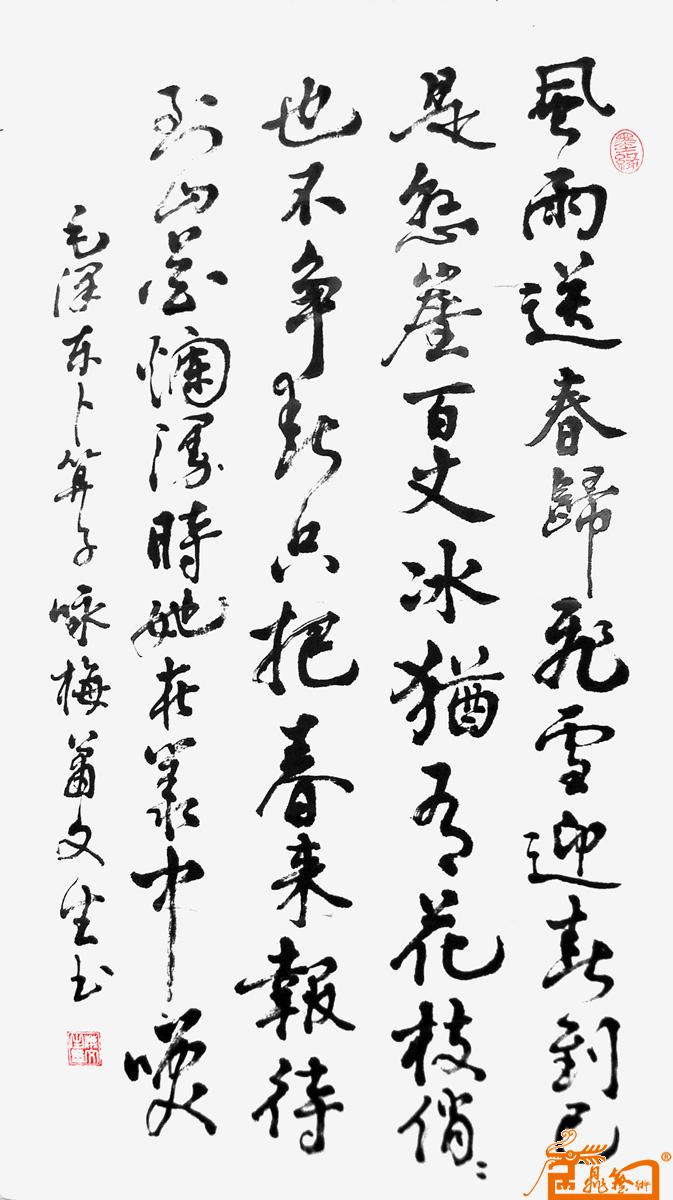 風雨送春歸飛雪迎春到已
是悬崖百丈冰猶有花枝俏〻
也不争春只把春来報待
到山花爛漫時她在叢中咲
毛澤东卜算子咏梅蕭文生书
墨緣